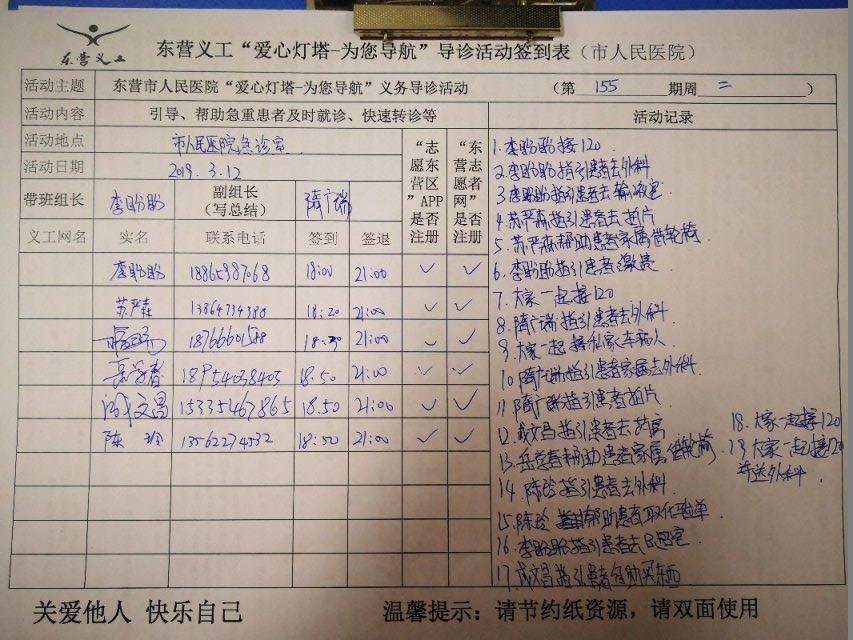 东营义工
东营义工“爱心灯塔-为您导航”导诊活动签到表（市人民医院）
活动主题 东营市人民医院“爱心灯塔-为您导航”义务导诊活动 （第 155 期周 二 ）
活动内容 引导、帮助急重患者及时就诊、快速转诊等 活动记录
活动地点 市人民医院急诊室
活动日期 2019.3.12
带班组长 李盼盼 副组长（写总结） 隋广瑞
“志愿东营区”APP是否注册
“东营志愿者网”是否注册
义工网名 实名 联系电话 签到 签退
李盼盼 18865987068 18:00 21:00 ✓ ✓
苏严森 13864734380 18:20 21:00 ✓ ✓
18766601588 18:30 21:00 ✓ ✓
岳学春 18954038403 18.50 21:00 ✓ ✓
成文昌 15335467865 18.50 21:00 ✓ ✓
陈玲 13562274532 18:50 21:00 ✓ ✓
1.李盼盼接120
2.李盼盼指引患者去外科
3.李盼盼指引患者去输液室
4.苏严森指引患者去拍片
5.苏严森帮助患者家属借轮椅
6.李盼盼指引患者缴费
7.大家一起接120
8.隋广瑞指引患者去外科
9.大家一起接私家车病人
10.隋广瑞指引患者家属去外科
11.隋广瑞指引患者拍片
12.成文昌指引患者去药房
13.岳学春帮助患者家属借轮椅
14.陈玲指引患者去外科
15.陈玲帮助患者取化验单
16.李盼盼指引患者去B超室
17.成文昌指引患者自助买东西
18.大家一起接120
19.大家一起接120
并送外科
关爱他人 快乐自己 温馨提示：请节约纸资源，请双面使用